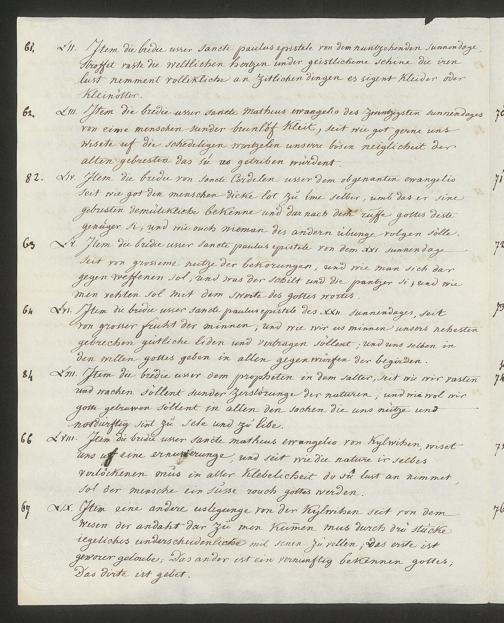 61. LII. Item die bredie usser sancte paulus epistele von dem nuntzehenden sunnendage,
straffet vaste die weltlichen hertzen under geistlicheme schine die iren
lust nemment vollekliche an zitlichen dingen es sigent kleider oder
kleinötter.
62. LIII. Item die bredie usser sancte Matheus ewangelio des zwentzigsten sunnendages
von eime menschen sunder brunlöf kleit, seit wie got gerne uns
wisete uf die schedeligen wurtzelen unserre bösen neiglicheit der
alten gebresten das sü us getriben würdent.
82. LIV. Item die bredie von sancte Cordelen usser dem obgenanten ewangelio
seit wie got den menschen dicke lot zu ime selber, umb das er sine
gebresten demütikliche bekenne und dar nach dem rüffe gottes deste
genüger si, und wie ouch nieman des andern übunge volgen sölle.
63. LV. Item die bredie usser sancte paulus epistele von dem XXI sunnendage
seit von grosseme neitze der bekorungen, und wie man sich dar
gegen weffenen sol, und was der schilt und die pantzer si, und wie
men vehten sol mit dem swerte des gottes wortes.
64. LVI. Item die bredie usser sancte paulus epistele des XXII sunnendages, seit
von grosser fruht der minnen, und wie wir us minnen unsers nehesten
gebrechen gütliche liden und vertragen söllent; und uns selben in
den willen gottes geben in allen gegenwürfen der begirden.
84. LVII. Item die bredie usser dem propheten in dem salter, seit wie wir vasten
und wachen söllent sunder zerstörunge der naturen, und wie wol wir
gotte getruwen söllent in allen den sachen die uns nütze und
notdurftig sint zu sele und zu libe.
66 LVIII. Item die bredie usser sancte matheus ewangelio von Kylwihen, wiset
uns uf eine ernuwerunge, und seit wie die nature ir selbes
verlöckenen müs in aller klebelicheit do sü lust an nimmet,
sol der mensche ein süsse rouch gottes werden.
67 LIX. Item eine andere uslegunge von der Kylwihen seit von dem
wesen der andaht dar zu men kumen mus durch drü stücke
iegeliches underscheidenliche mit senen zu vellen; das erste ist
gewarer geloube; Das ander ist ein vernunftig bekennen gottes;
Das dirte ist gebet.